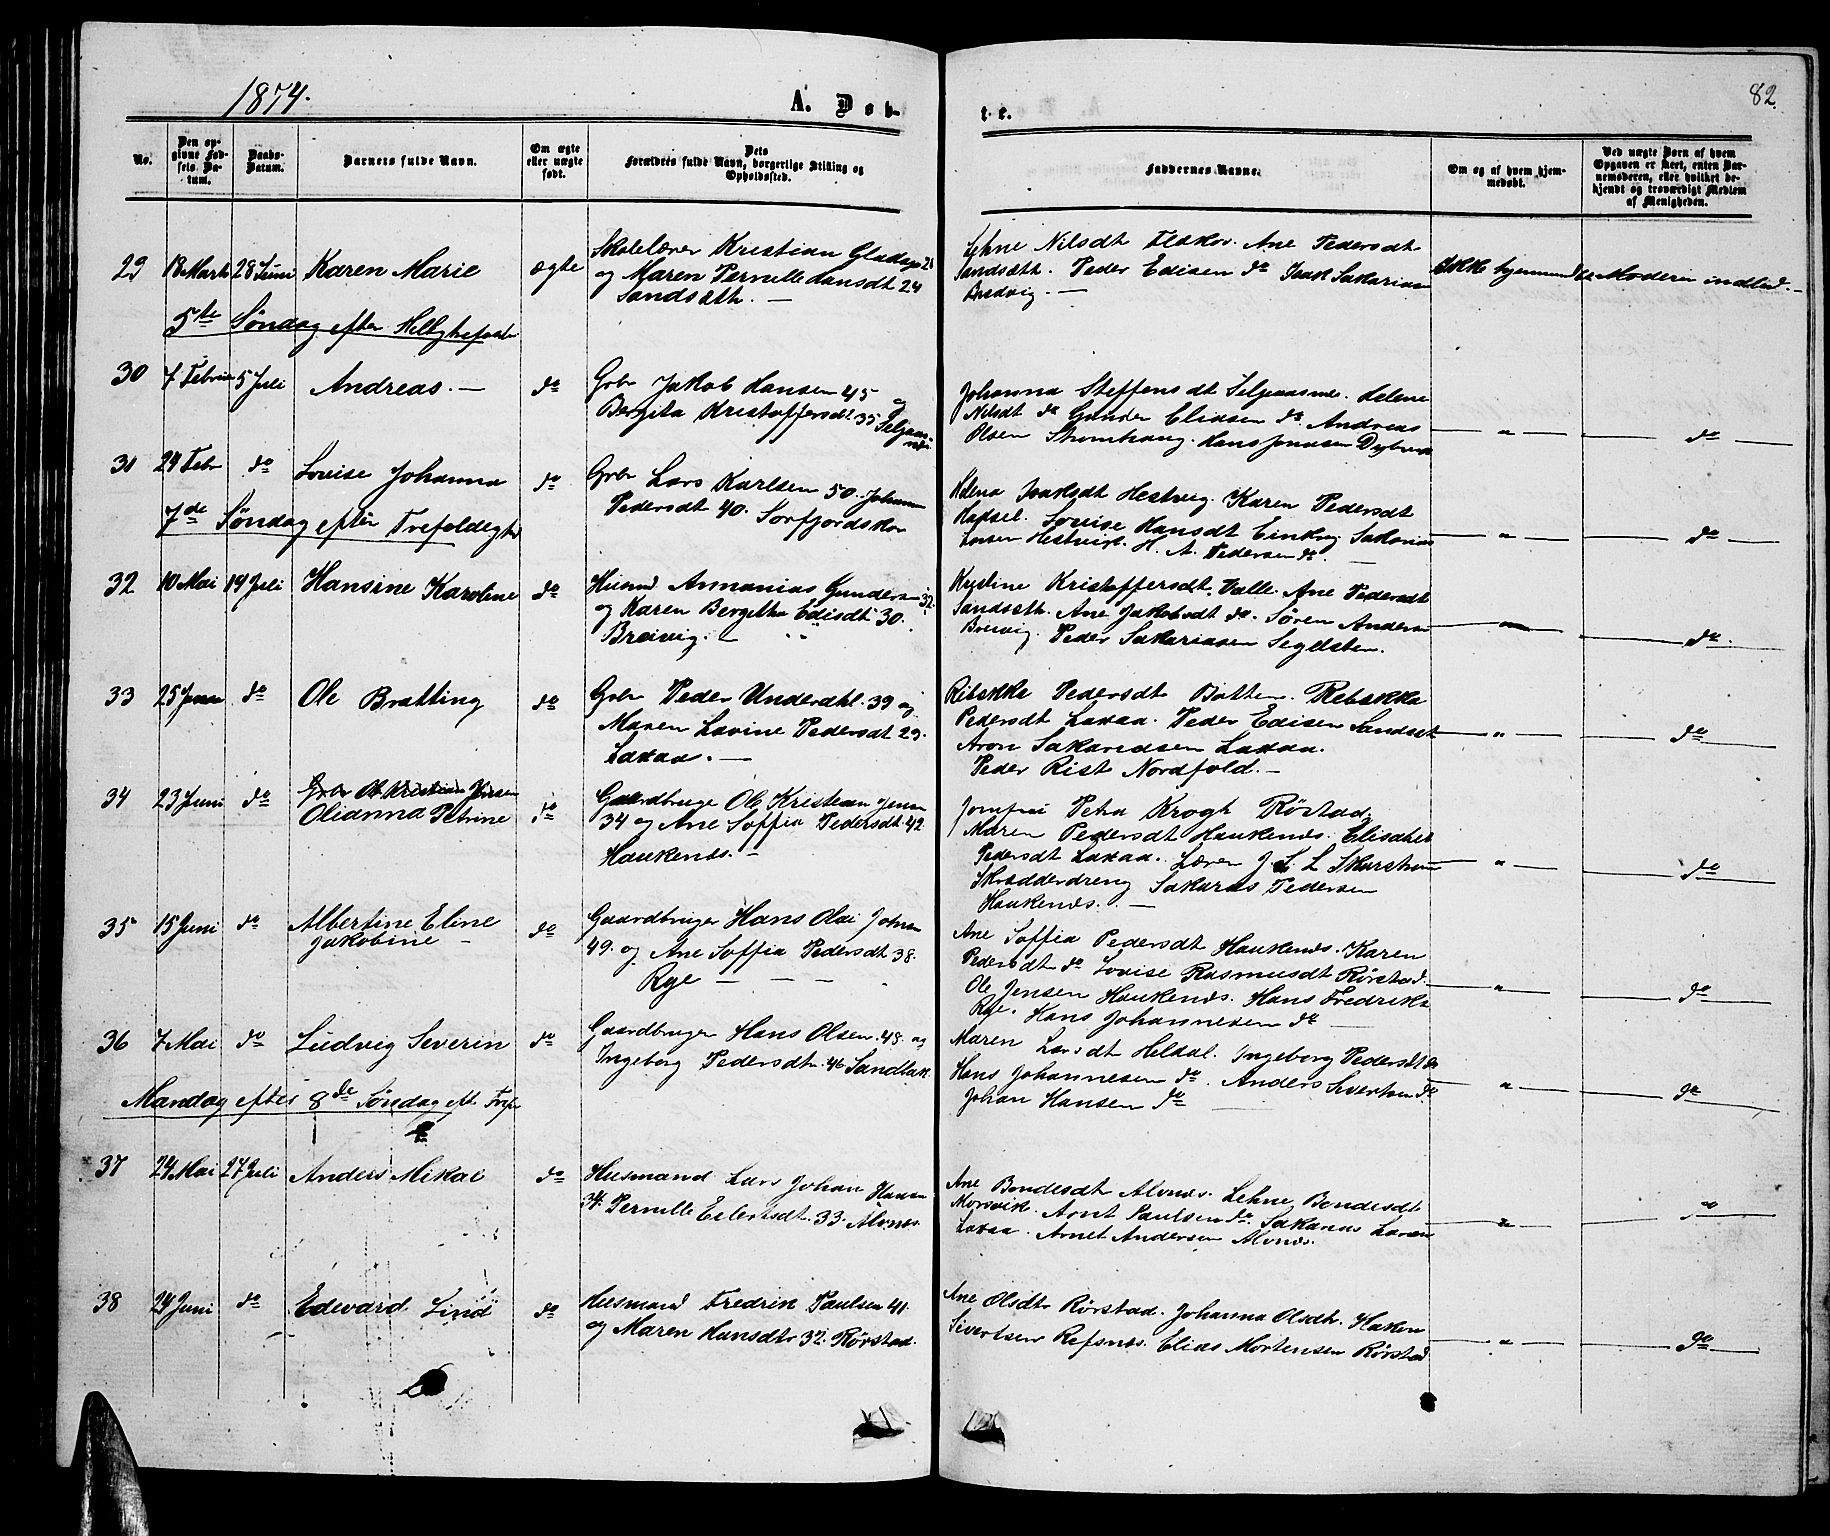 1874.
A. Døb-
t e.
82.
No.
Den opgivne Fødsels-Datum.
Daabs-Datum.
Barnets fulde Navn.
Om ægte eller uægte født.
Dets Forældres fulde Navn, borgerlige Stilling og Opholdssted.
Faddernes Navne.
Om og af hvem hjemmedøbt.
Ved uægte Børn af hvem Opgaven er skeet, enten Barnemoderen, eller hvilket bekjendt og troværdigt Medlem af Menigheden.
29 18 Marts 28 Juni Karen Marie ægte
Skolelærer Kristian
og Maren Pernille Hansdt 24
Sandsæth. —
Lehne Nilsdt Ane Pedersdt
Sandsæth. Peder Edisen do Isak Sakarias
Bredvig. —
Ikke hjemmed Moderen indled. —
5te Søndag efter
30 7 Februar 5 Juli Andreas. — do
Grbr Jakob Hansen 45 og
Bergita Kristoffersdt 35
Johanna Steffensdt Helene
Nilsdt do Gunder Eliasen do Andreas
Olsen Stromhaug. Hans Jonasen
— " — do —
31 24 Febr do Lovise Johanna do
Grbr Lars Karlsen 50. Johanna
Pedersdt 40. Sørfjordskar
Helena Isaksdt Hestvig. Karen Pedersdt
Lovise Hansdt Sakarias
Larsen Hestvik. H. A. Pedersen do. —
— " — do —
7de Søndag efter Trefoldigh
32 10 Mai 19 Juli Hansine Karoline do
Husmd Annanias Gunders 32
og Karen Bergitha Edisdt 30.
Breivig. —
Kristine Kristoffersdt. Valle. Ane Pedersdt
Sandsæth. Ane Jakobsdt do. Søren Anders
Breivig. Peder Sakariasen Seglsten.
— " — do. —
33 25 do Ole Bratting do
Grbr Peder Underdahl. 39 og
Maren Lovine Pedersdt 29.
Laxaa. —
Rebekke Pedersdt Botten. Rebekka
Pedersdt Laxaa. Peder Edisen Sandset
Aron Sakariasen Laxaa.
Peder Rist Nordfold. —
— " — do —
34 23 Juni do Grbr Ol Kristian Jensen
Olianna Petrine do
Gaardbruge Ole Kristian Jensen
34 og Ane Soffia Pedersdt. 42
Haukenæs. —
Jomfru Petra Krogh Rørstad,
Maren Pedersdt Haukenæs. Elisabet
Pedersdt Laxaa. Lærer J. L. L Skarstrøm
Skrædderdreng Sakarias Pedersen
Haukenæs. —
— " — do —
35 15 Juni do Albertine Eline
Jakobine — do
Gaardbruger Hans Olai Johns
49. og Ane Soffia Pedersdt 38.
Rye — — —
Ane Soffia Pedersdt Haukenæs. Karen
Pedersdt do Lovise Rasmusdt Rørstad.
Ole Jensen Haukenæs. Hans Fredriks
Rye. Hans Johannesen do —
— " — do —
36 7 Mai do Ludvig Severin do
Gaardbruger Hans Olsen. 48. og
Ingeborg Pedersdt. 46 Sandbak.
Maren Larsdt Heldal. Ingeborg Pedersdt do
Hans Johannesen do. Anders Sivertsen do
Johan Hansen do —
— " — do —
Mandag efter 8de Søndag eft. Tref
37 24 Mai 27 Juli Anders Mikal do
Husmand Lars Johan Hansen
34. Pernille Eilertsdt. 33. Alvnes.
Ane Bendesdt Alvnes. Lehne Bendesdt
Morsvik. Arnt Paulsen do. Sakarias Larsen
Laxaa. Arnet Andersen Alvnes.
— " — " —
38 24 Juni do Edevard Lind do
Husmand Fredrik Paulsen 41.
og Maren Hansdtr 32. Rørstad.
Ane Olsdtr Rørstad. Johanna Olsdtr. Haken
Sivertsen Refsnes. Elias Mortensen Rørstad
— " — do —